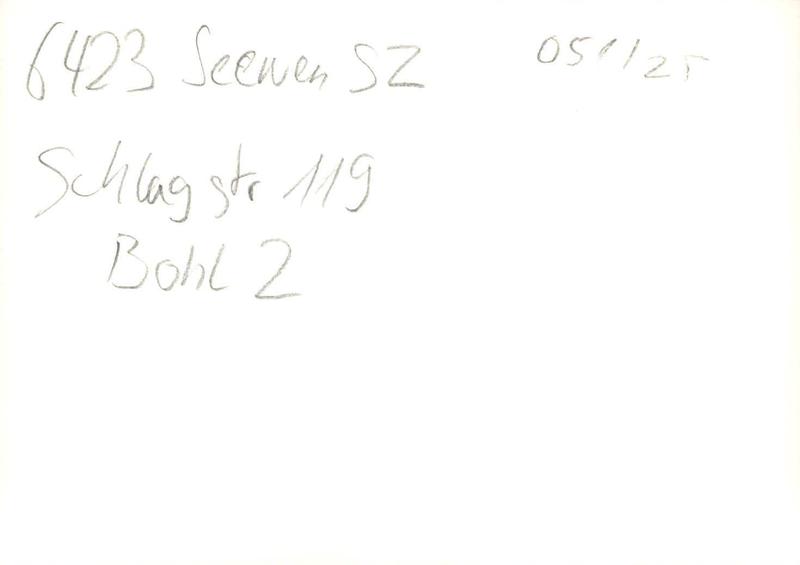 6423 Seewen SZ
051/25
Schlagstr 119
Bohl 2